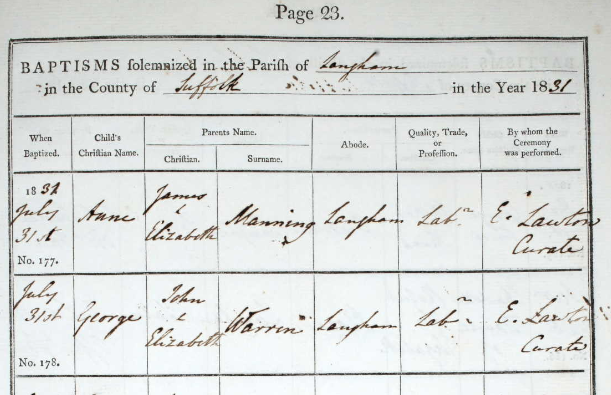 Page 23.
BAPTISMS solemnized in the Parish of Langham
in the County of Suffolk in the Year 1831
When Baptized.
Child's Christian Name.
Parents Name.
Christian.
Surname.
Abode.
Quality, Trade, or Profession.
By whom the Ceremony was performed.
1831
July
31st
No. 177.
Anne
James
&
Elizabeth
Manning
Langham
Labr.
E. Lawton
Curate
July
31st
No. 178.
George
John
&
Elizabeth
Warren
Langham
Labr.
E. Lawton
Curate